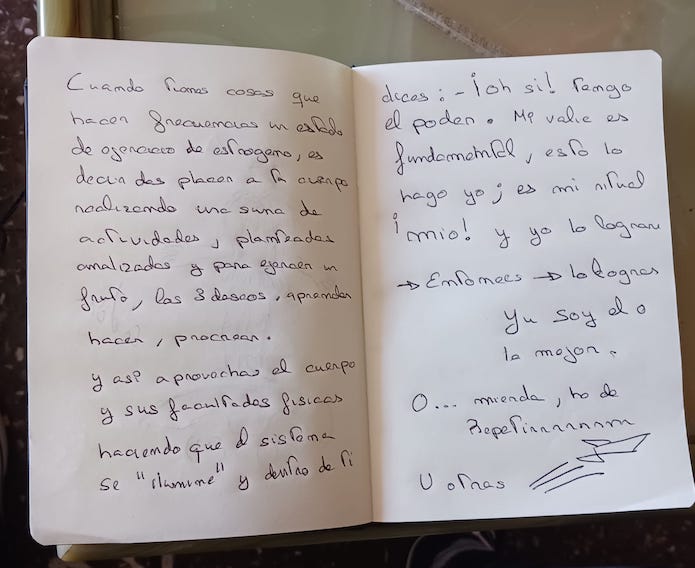 Cuando tienes cosas que
hacen frecuencias un estado
de ejercicio de estrogeno, es
decir das placer a tu cuerpo
realizando una suma de
actividades, planteadas
analizadas y para ejercer un
fruto, las 3 deseos, aprender
hacer, procrear.
y así aprovechas el cuerpo
y sus facultades fisicas
haciendo que el sistema
se "ilumine" y dentro de ti
dices: -¡oh si! Tengo
el poder. Me valie es
fundamental, esto lo
hago yo; es mi ritual
¡mio! y yo lo lograre
→ Entonces → lo logras
Yu soy el o
la mejor.
O... mierda, ho de
Repetirrrrrrrr
U otras